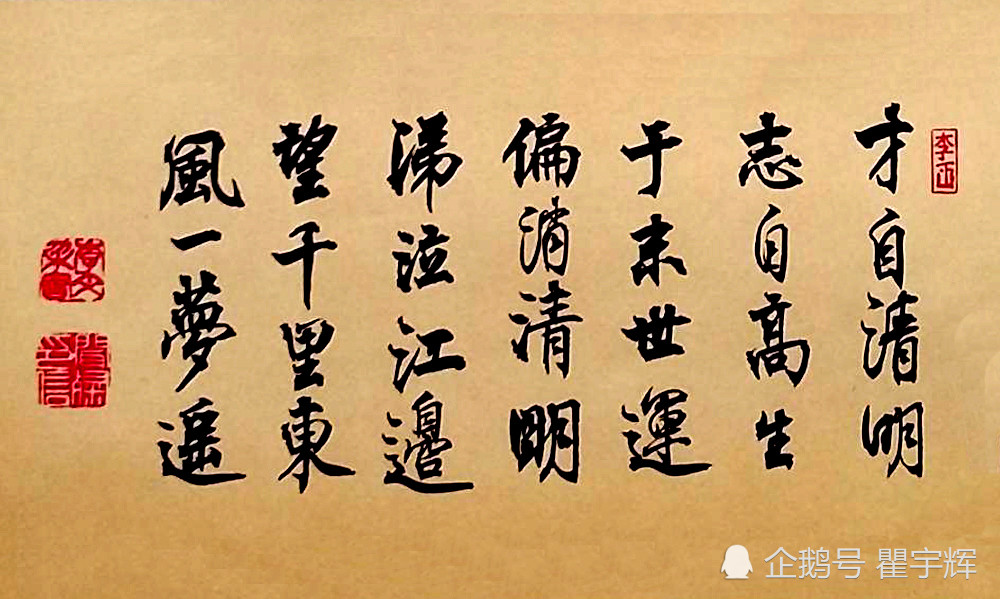 才自清明
志自高生
于末世運
偏消清明
涕泣江邊
望千里東
風一夢遥
企鹅号 瞿宇辉